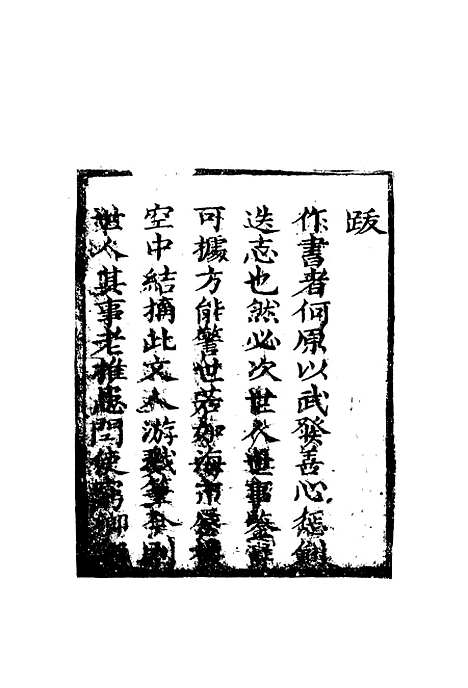 跋
作書者何原以武發善心懲創
逸志也然必次世人世事鑿鑿
可據方能警世若如海市蜃樓
空中結搆此文人游戲筆
世人其事老推愚問使